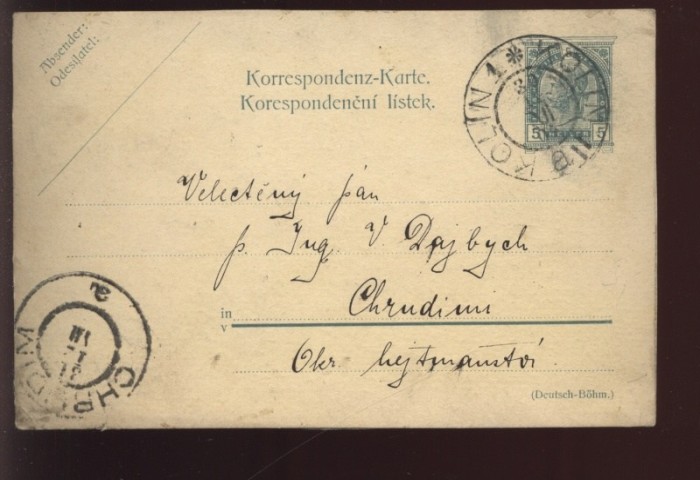 Absender:
Odesílatel:
Korrespondenz-Karte.
Korespondenční lístek.
KOLIN 1 * KOLÍN
a
5 5
Velectěný pán
p. Ing. V. Dajbych
in
v
Chrudimi
Okr hejtmanství
(Deutsch-Böhm.)
CHRUDIM
a